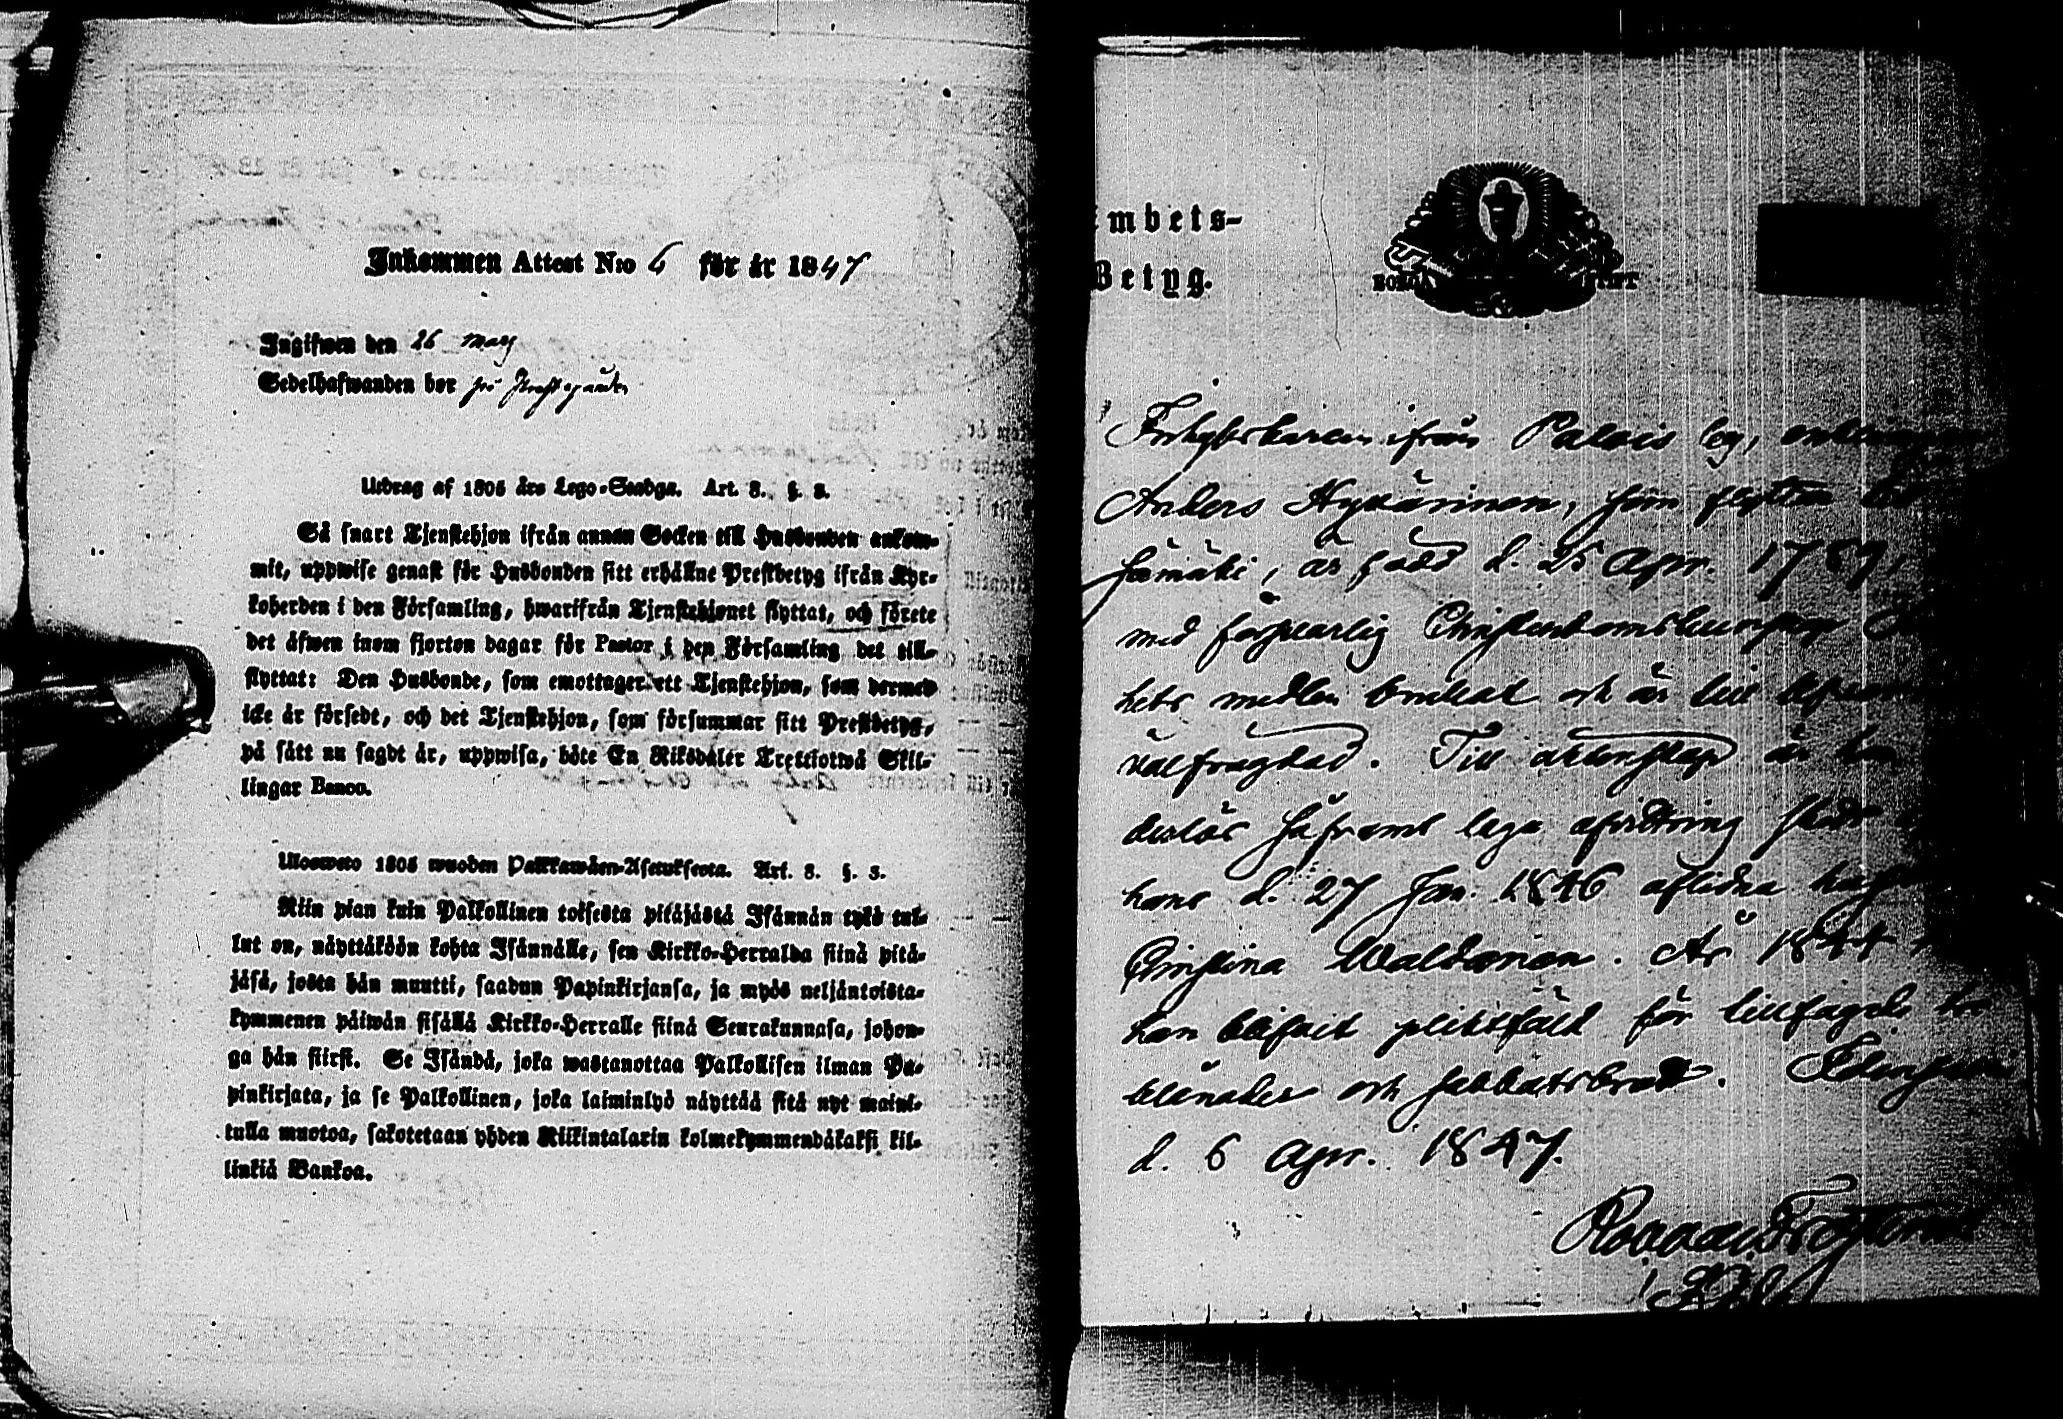 Inkommen Attest N:o 6 för år 1847
Ingifwen den 26 Marz
Sedelhafwanden bor på
Utdrag af 1805 års Lego-Stadga. Art. 3. §. 3.
Så snart Tjenstehjon ifrån annan Socken till Husbonden ankom-
mit, uppwise genast för Husbonden sitt erhållne Prestbetyg ifrån Kyr-
koherden i den Församling, hwarifrån Tjenstehjonet flyttat, och förete
det äfwen inom fjorton dagar för Pastor i den Församling det till-
flyttat: Den Husbonde, som emottager ett Tjenstehjon, som dermed
icke är försedt, och det Tjenstehjon, som försummar sitt Prestbetyg,
på sätt nu sagdt är, uppwisa, böte En Riksdaler Trettiotwå Skil-
lingar Banco.
Ulosweto 1805 wuoden Palkkawäen-Asetuksesta. Art. 3. §. 3.
Niin pian kuin Palkollinen toisesta pitäjästä Isännän tykö tul-
lut on, näyttäköön kohta Isännälle, sen Kirkko-Herralda siinä pitä-
jäsä, josta hän muutti, saadun Papinkirjansa, ja myös neljäntoista-
kymmenen päiwän sisällä Kirkko-Herralle siinä Seurakunnasa, johon-
ga hän siirsi. Se Isändä, joka wastanottaa Palkollisen ilman Pa-
pinkirjata, ja se Palkollinen, joka laiminlyö näyttää sitä nyt maini-
tulla muotoa, sakotetaan yhden Riikintalarin kolmekymmendäkaksi kil-
linkiä Bankoa.
mbets-
Betyg.
ifrån Palois by, enkl
Anders Hyvärinen, som flyttar
, är född d. 25 Apr. 1789,
med försvarlig Christendomskunskap
hets medlen brukat och är till
välfrägdad. Till äktenskap är han
lös såframt laga afvittring skett
hans d. 27 Jan. 1846 aflidna
Christina Waldanen. År 1844
han blifvit pliktfäld för
och sabbatsbrott. Idensalmi
d. 6 Apr. 1847.